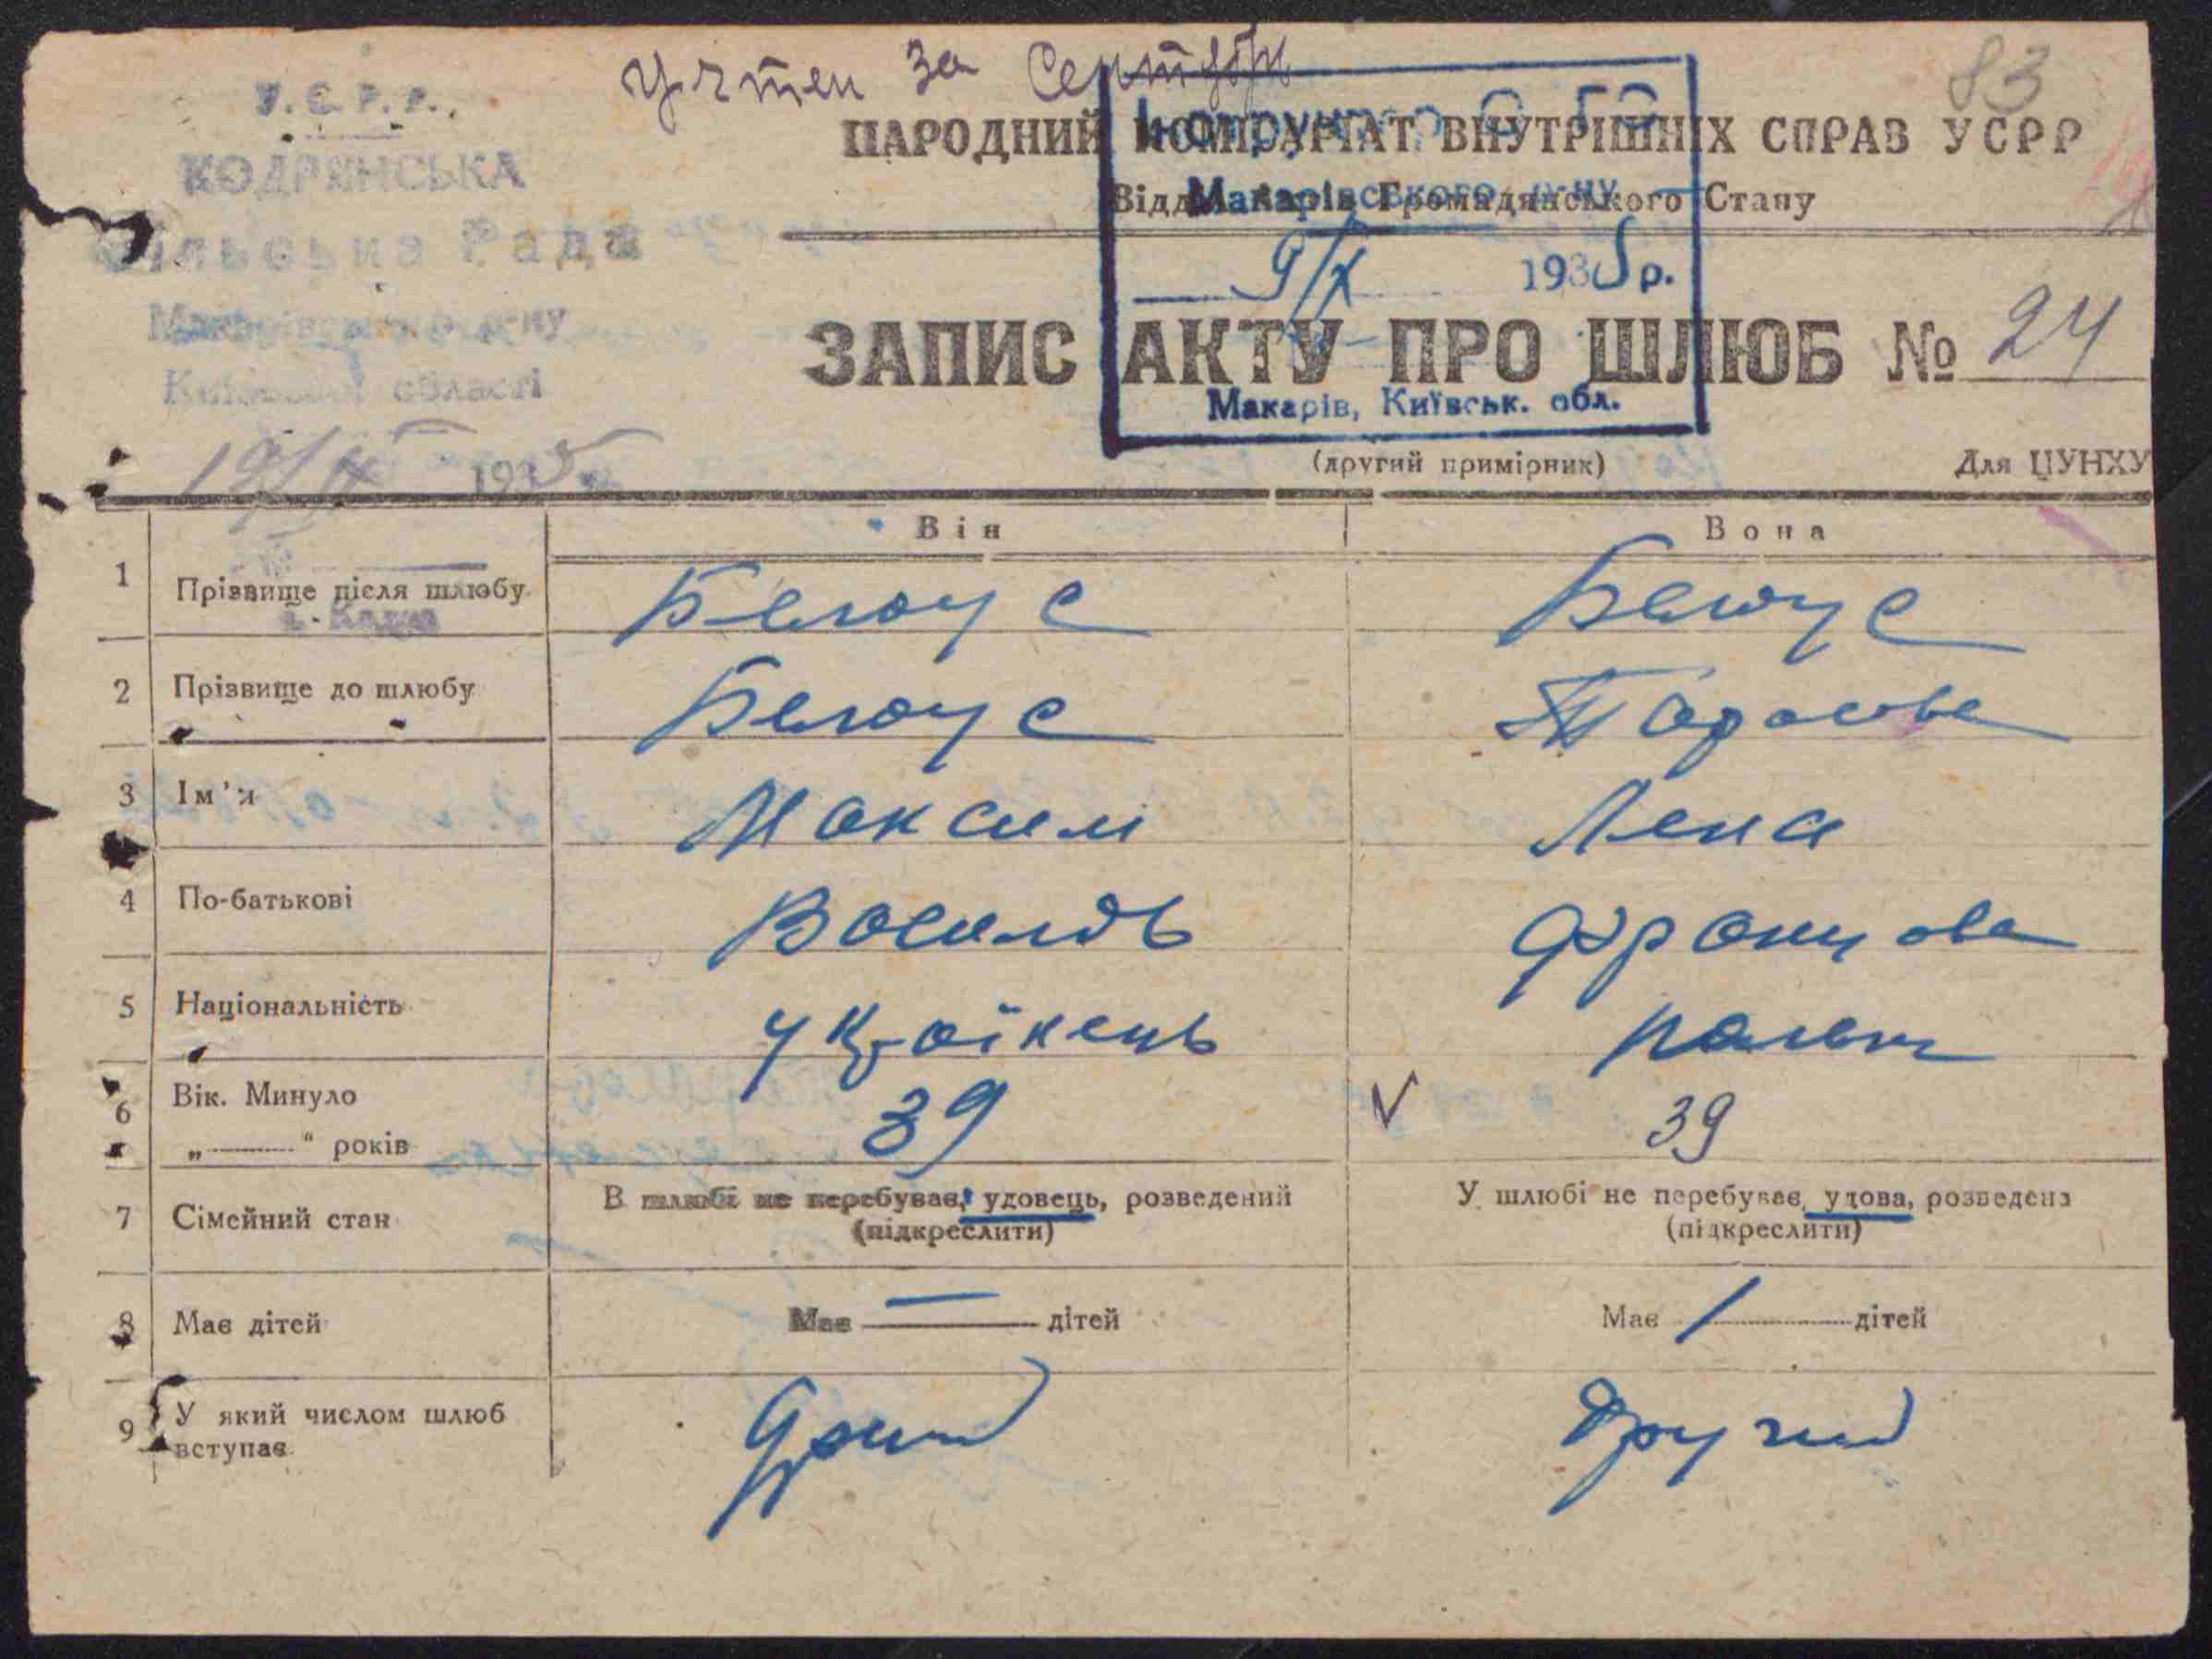 У.С.Р.Р.
КОДРЯНСЬКА
Сільська Рада
Макарівського р-ну
Київської області
193 р.
с. Кодра
Учтен за Сентябрь
83
НАРОДНИЙ КОМІСАРІАТ ВНУТРІШНІХ СПРАВ УСРР
Відділ Актів Громадянського Стану
Макарівського р-ну
9/X 1935 р.
Макарів, Київськ. обл.
ЗАПИС АКТУ ПРО ШЛЮБ № 24
(другий примірник) Для ЦУНХУ
Він Вона
1 Прізвище після шлюбу Белоус Белоус
2 Прізвище до шлюбу Белоус Тарасова
3 Ім'я Максим Лена
4 По-батькові Францова
5 Національність україкець
6 Вік. Минуло 39 V 39
„ “ років
7 Сімейний стан В шлюбі не перебуває, удовець, розведений У шлюбі не перебуває, удова, розведена
(підкреслити) (підкреслити)
8 Має дітей Має — дітей Має / дітей
9 У який числом шлюб Другий
вступає